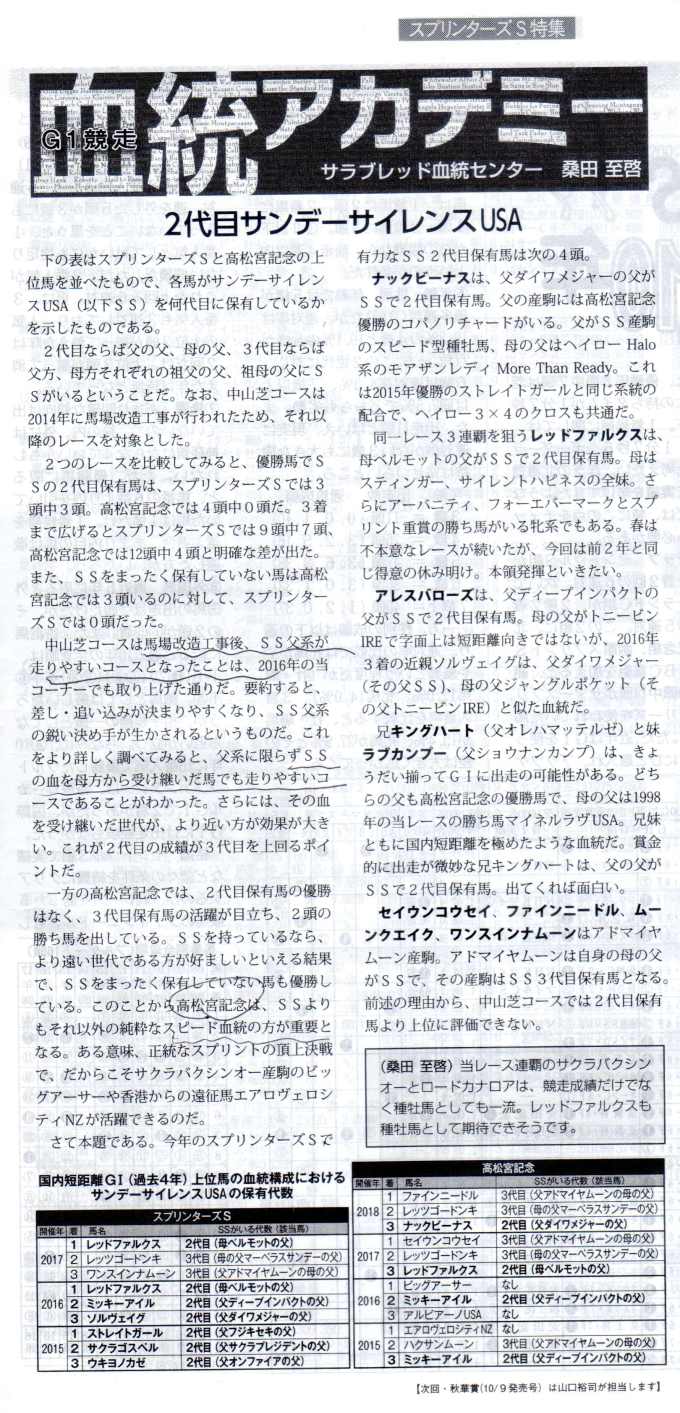 スプリンターズS特集
血統アカデミー
G1競走
サラブレッド血統センター 桑田 至啓
2代目サンデーサイレンスUSA
下の表はスプリンターズSと高松宮記念の上
位馬を並べたもので、各馬がサンデーサイレン
スUSA(以下SS)を何代目に保有しているか
を示したものである。
2代目ならば父の父、母の父、3代目ならば
父方、母方それぞれの祖父の父、祖母の父にS
Sがいるということだ。なお、中山芝コースは
2014年に馬場改造工事が行われたため、それ以
降のレースを対象とした。
2つのレースを比較してみると、優勝馬でS
Sの2代目保有馬は、スプリンターズSでは3
頭中3頭。高松宮記念では4頭中0頭だ。3着
まで広げるとスプリンターズSでは9頭中7頭、
高松宮記念では12頭中4頭と明確な差が出た。
また、SSをまったく保有していない馬は高松
宮記念では3頭いるのに対して、スプリンター
ズSでは0頭だった。
中山芝コースは馬場改造工事後、SS父系が
走りやすいコースとなったことは、2016年の当
コーナーでも取り上げた通りだ。要約すると、
差し・追い込みが決まりやすくなり、SS父系
の鋭い決め手が生かされるというものだ。これ
をより詳しく調べてみると、父系に限らずSS
の血を母方から受け継いだ馬でも走りやすいコ
ースであることがわかった。さらには、その血
を受け継いだ世代が、より近い方が効果が大き
い。これが2代目の成績が3代目を上回るポイ
ントだ。
一方の高松宮記念では、2代目保有馬の優勝
はなく、3代目保有馬の活躍が目立ち、2頭の
勝ち馬を出している。SSを持っているなら、
より遠い世代である方が好ましいといえる結果
で、SSをまったく保有していない馬も優勝し
ている。このことから高松宮記念は、SSより
もそれ以外の純粋なスピード血統の方が重要と
なる。ある意味、正統なスプリントの頂上決戦
で、だからこそサクラバクシンオー産駒のビッ
グアーサーや香港からの遠征馬エアロヴェロシ
ティNZが活躍できるのだ。
さて本題である。今年のスプリンターズSで
有力なSS2代目保有馬は次の4頭。
ナックビーナスは、父ダイワメジャーの父が
SSで2代目保有馬。父の産駒には高松宮記念
優勝のコパノリチャードがいる。父がSS産駒
のスピード型種牡馬、母の父はヘイロー Halo
系のモアザンレディ More Than Ready。これ
は2015年優勝のストレイトガールと同じ系統の
配合で、ヘイロー3×4のクロスも共通だ。
同一レース3連覇を狙うレッドファルクスは、
母ベルモットの父がSSで2代目保有馬。母は
スティンガー、サイレントハピネスの全妹。さ
らにアーバニティ、フォーエバーマークとスプ
リント重賞の勝ち馬がいる牝系でもある。春は
不本意なレースが続いたが、今回は前2年と同
じ得意の休み明け。本領発揮といきたい。
アレスバローズは、父ディープインパクトの
父がSSで2代目保有馬。母の父がトニービン
IREで字面上は短距離向きではないが、2016年
3着の近親ソルヴェイグは、父ダイワメジャー
(その父SS)、母の父ジャングルポケット(そ
の父トニービンIRE)と似た血統だ。
兄キングハート(父オレハマッテルゼ)と妹
ラブカンプー(父ショウナンカンプ)は、きょ
うだい揃ってGIに出走の可能性がある。どち
らの父も高松宮記念の優勝馬で、母の父は1998
年の当レースの勝ち馬マイネルラヴUSA。兄妹
ともに国内短距離を極めたような血統だ。賞金
的に出走が微妙な兄キングハートは、父の父が
SSで2代目保有馬。出てくれば面白い。
セイウンコウセイ、ファインニードル、ムー
ンクエイク、ワンスインナムーンはアドマイヤ
ムーン産駒。アドマイヤムーンは自身の母の父
がSSで、その産駒はSS3代目保有馬となる。
前述の理由から、中山芝コースでは2代目保有
馬より上位に評価できない。
(桑田 至啓)当レース連覇のサクラバクシン
オーとロードカナロアは、競走成績だけでな
く種牡馬としても一流。レッドファルクスも
種牡馬として期待できそうです。
国内短距離GI(過去4年)上位馬の血統構成における
サンデーサイレンスUSAの保有代数
スプリンターズS
開催年 着 馬名 SSがいる代数(該当馬)
2017 1 レッドファルクス 2代目(母ベルモットの父)
2 レッツゴードンキ 3代目(母の父マーベラスサンデーの父)
3 ワンスインナムーン 3代目(父アドマイヤムーンの母の父)
2016 1 レッドファルクス 2代目(母ベルモットの父)
2 ミッキーアイル 2代目(父ディープインパクトの父)
3 ソルヴェイグ 2代目(父ダイワメジャーの父)
2015 1 ストレイトガール 2代目(父フジキセキの父)
2 サクラゴスペル 2代目(父サクラプレジデントの父)
3 ウキヨノカゼ 2代目(父オンファイアの父)
高松宮記念
開催年 着 馬名 SSがいる代数(該当馬)
2018 1 ファインニードル 3代目(父アドマイヤムーンの母の父)
2 レッツゴードンキ 3代目(母の父マーベラスサンデーの父)
3 ナックビーナス 2代目(父ダイワメジャーの父)
2017 1 セイウンコウセイ 3代目(父アドマイヤムーンの母の父)
2 レッツゴードンキ 3代目(母の父マーベラスサンデーの父)
3 レッドファルクス 2代目(母ベルモットの父)
2016 1 ビッグアーサー なし
2 ミッキーアイル 2代目(父ディープインパクトの父)
3 アルビアーノUSA なし
2015 1 エアロヴェロシティNZ なし
2 ハクサンムーン 3代目(父アドマイヤムーンの母の父)
3 ミッキーアイル 2代目(父ディープインパクトの父)
【次回・秋華賞(10/9発売号)は山口裕司が担当します】